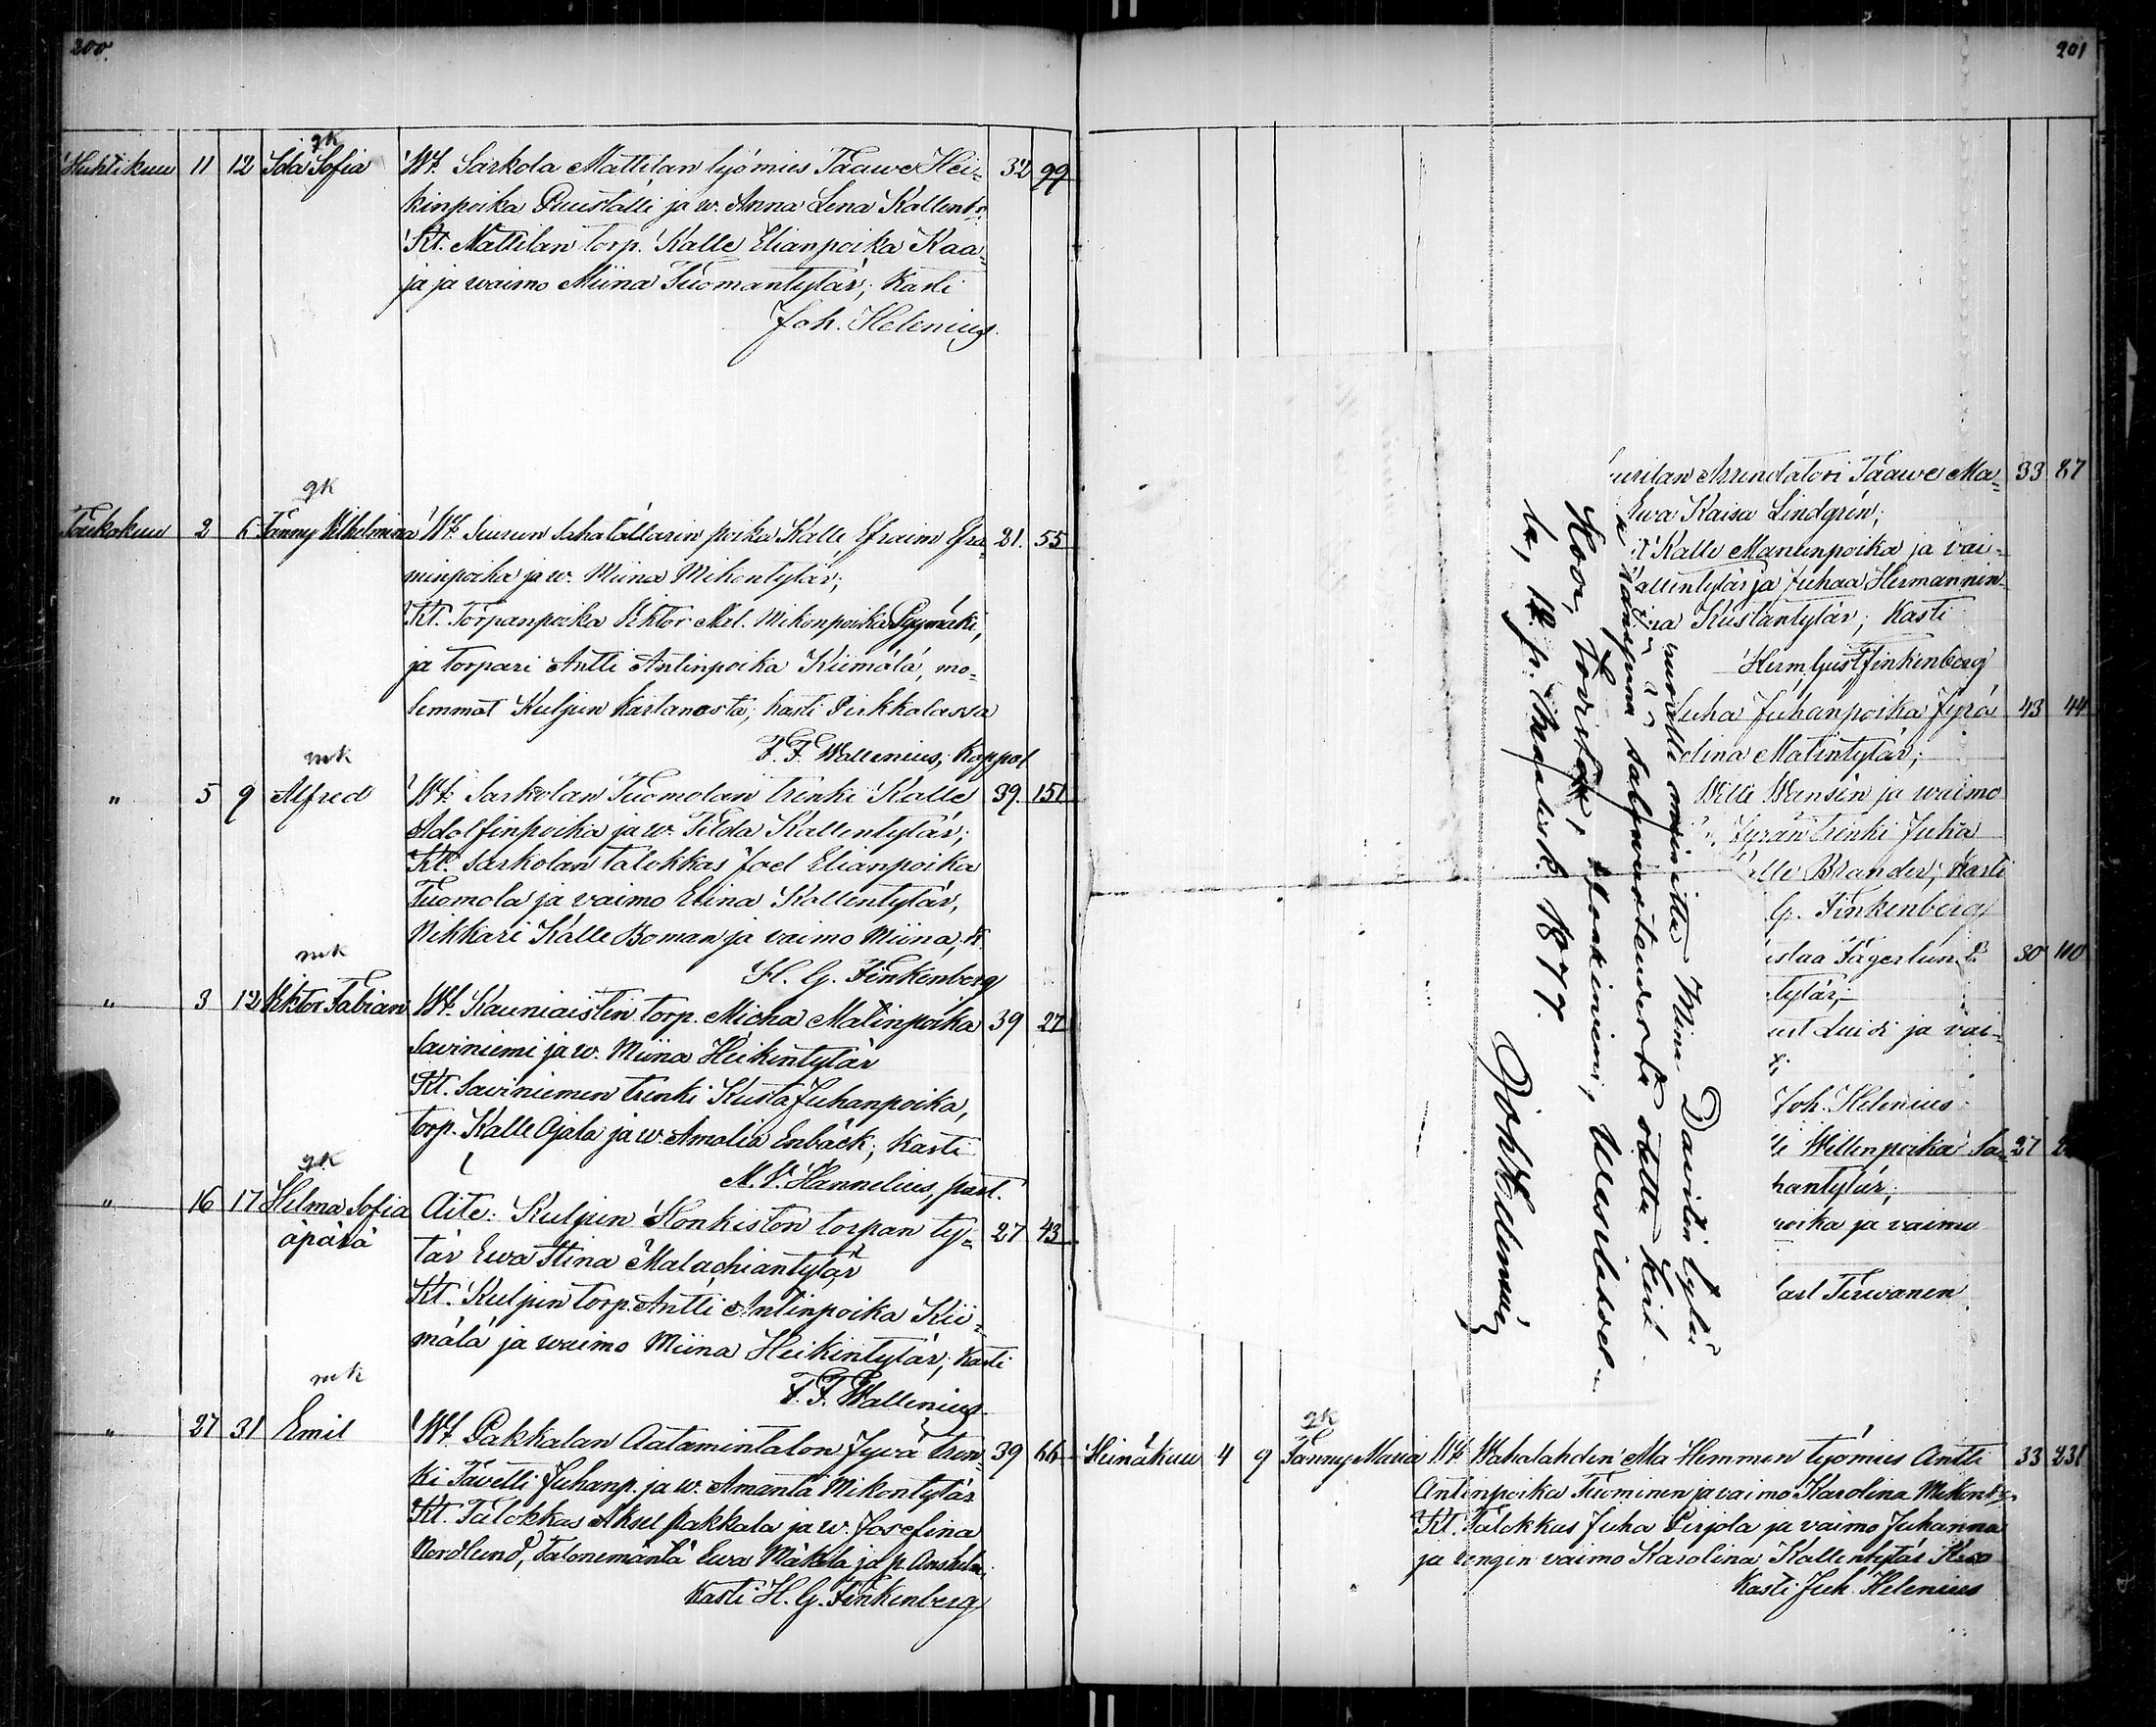 200.
gk
Huhtikuu 11 12 Ida Sofia Wt. Sarkola Mattilan työmies Taawe Hei= 32 99
kinpoika Puustalli ja w. Anna Lena Kallent:r
Kt. Mattilan torp. Kalle Elianpoika Kaa=
ja ja waimo Miina Tuomantytär; Kasti
Joh. Helenius.
gk
Toukokuu 2 6 Fanny Wilhelmina Wt. Siuron Sahatällärin poika Kalle Efraim Efra= 21. 55
minpoika ja w. Miina Mikontytär;
Kt. Torpanpoika Viktor Mat. Mikonpoika Pyymäki,
ja torpari Antti Antinpoika Kiimälä, mo=
lemmat Kuljun kartanosta; kasti Pirkkalassa
F. F. Wallenius, Kappal
mk
" 5 9 Alfred Wt. Sarkolan Tuomolan trenki Kalle 39. 151
Adolfinpoika ja w. Tilda Kallentytär;
Kt. Sarkolan talokkas Joel Elianpoika
Tuomola ja vaimo Elina Kallentytär,
Nikkari Kalle Boman ja vaimo Miina, K.
H. G. Finkenberg
mk
" 3 12 Viktor Fabian Wt. Kauniaisten torp. Micha Matinpoika 39 27
Saviniemi ja w. Miina Heikintytär
Kt. Saviniemen trenki Kusta Juhanpoika,
torp. Kalle Ojala ja w. Amalia Enbäck; Kasti
M. V. Hannelius, past.
gk
" 16 17 Hilma Sofia Äite: Kuljun Honkiston torpan ty= 27 43
äpärä tär Ewa Stina Malachiantytär
Kt. Kuljun torp. Antti Antinpoika Kii=
mälä ja waimo Miina Heikintytär; Kasti
F. F. Wallenius.
mk
" 27 31 Emil Wt. Pakkalan Aatamintalon Jyvä tren= 39 66
ki Tavetti Juhanp. ja w. Amanta Mikontytär
Kt. Talokkas Aksel Pakkala ja w. Josefina
Nordlund, Talonemäntä Ewa Mäkelä ja p. Anshelm.
Kasti H. G. Finkenberg
201
urilan Arrendatori Taawe Ma= 33 87
Ewa Kaisa Lindgrén;
Kalle Manunpoika ja vai=
allentytär ja Juhaa Hermannin
Kustantytär; Kasti
Herm. Gust. Finkenberg
Juha Juhanpoika Jyrä 43 44
olina Matintytär;
Wille Wansén ja waimo
Jyrän trenki Juha
alle Brander; Kasti
G. Finkenberg
ustaa Fagerlund 30 110
tytär;
ust Luidi ja vai=
Joh. Helenius
Willenpoika Sa= 27
hantytär;
poika ja vaimo
Carl Terwanen
Miina Davidin tytär
otettu Kirk.
1879.
Joh Helenius
gk
Heinäkuu 4 9 Fanny Maria Wt. Wahalahden Ala Hemmon työmies Antti 33 231
Antinpoika Tuominen ja vaimo Karolina Mikont:r
Kt. Talokkas Juha Pirjola ja vaimo Juhanna
ja rengin vaimo Karolina Kallentytär
Kasti Joh. Helenius